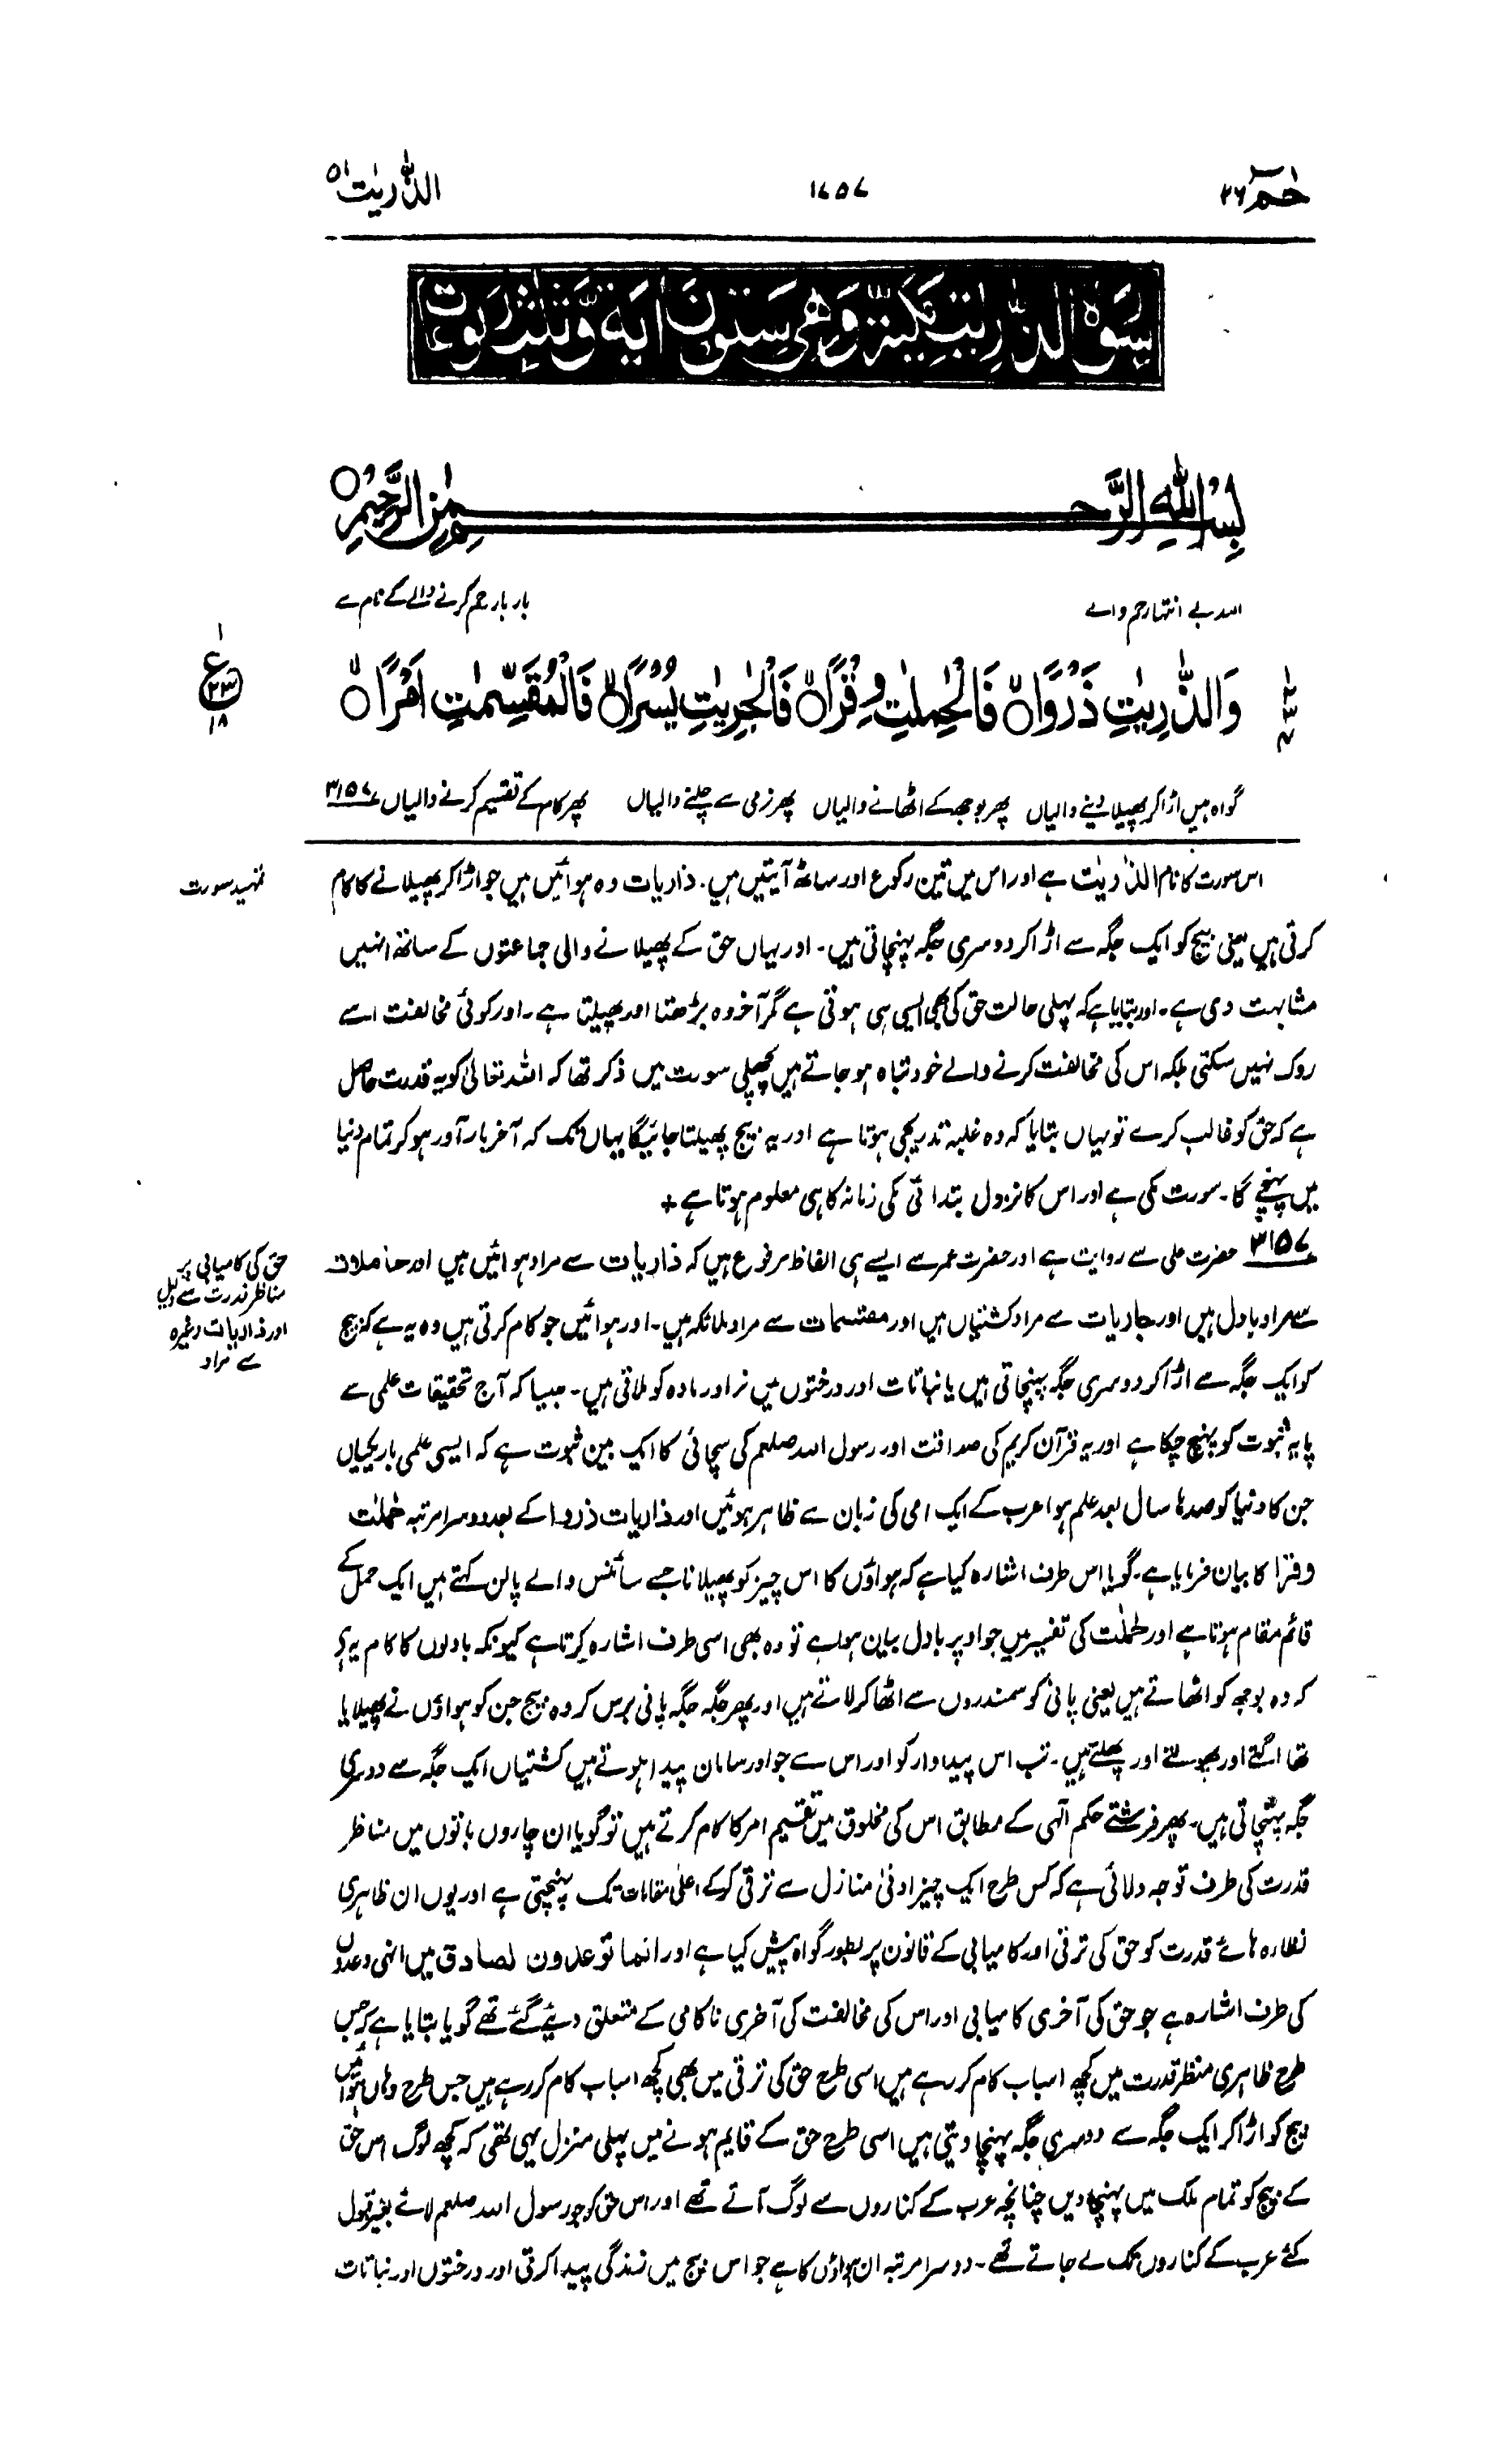 حٰمٓ ۲۶
۱۷۵۷
الذّٰریٰت ۵۱
سورة الذّٰریٰت مکیة وھی ستون اٰیة وثلٰث رکوعات
بِسْمِ اللّٰهِ الرَّحْمٰنِ الرَّحِیْمِ ○
اللہ بے انتہا رحم والے
بار بار رحم کرنے والے کے نام سے
ع ۱ ۲۳ ۱۸
وَالذّٰرِیٰتِ ذَرْوًا ○ۙ فَالْحٰمِلٰتِ وِقْرًا ○ۙ فَالْجٰرِیٰتِ یُسْرًا ○ۙ فَالْمُقَسِّمٰتِ اَمْرًا ○ۙ
گواہ ہیں اڑا کر پھیلا دینے والیاں پھر بوجھ کے اٹھانے والیاں پھر نرمی سے چلنے والیاں پھر کام کے تقسیم کرنے والیاں ۳۱۵۷
تمہید سورت
اس سورت کا نام الذّٰریٰت ہے اور اس میں تین رکوع اور ساٹھ آیتیں ہیں۔ ذاریات وہ ہوائیں ہیں جو اڑا کر پھیلانے کا کام
کرتی ہیں یعنی بیج کو ایک جگہ سے اڑا کر دوسری جگہ پہنچاتی ہیں۔ اور یہاں حق کے پھیلانے والی جماعتوں کے ساتھ انہیں
مشابہت دی ہے۔ اور بتایا ہے کہ پہلی حالت حق کی بھی ایسی ہی ہوتی ہے مگر آخر وہ بڑھتا اور پھیلتا ہے۔ اور کوئی مخالفت اسے
روک نہیں سکتی بلکہ اس کی مخالفت کرنے والے خود تباہ ہو جاتے ہیں پچھلی سورت میں ذکر تھا کہ اللہ تعالیٰ کو یہ قدرت حاصل
ہے کہ حق کو غالب کرے تو یہاں بتایا کہ وہ غلبہ تدریجی ہوتا ہے اور یہ بیج پھیلتا جائیگا یہاں تک کہ آخر بارآور ہو کر تمام دنیا
میں پہنچے گا۔ سورت مکی ہے اور اس کا نزول ابتدائی مکی زمانہ کا ہی معلوم ہوتا ہے +
حق کی کامیابی پر
مناظر قدرت سے دلیل
اور ذاریات وغیرہ
سے مراد
۳۱۵۷ حضرت علی سے روایت ہے اور حضرت عمر سے ایسے ہی الفاظ مرفوع ہیں کہ ذاریات سے مراد ہوائیں ہیں اور حاملات
سے مراد بادل ہیں اور جاریات سے مراد کشتیاں ہیں اور مقسمات سے مراد ملائکہ ہیں۔ اور ہوائیں جو کام کرتی ہیں وہ یہ ہے کہ بیج
کو ایک جگہ سے اڑا کر دوسری جگہ پہنچاتی ہیں یا نباتات اور درختوں میں نر اور مادہ کو ملاتی ہیں۔ جیسا کہ آج تحقیقات علمی سے
پایہ ثبوت کو پہنچ چکا ہے اور یہ قرآن کریم کی صداقت اور رسول اللہ صلعم کی سچائی کا ایک بین ثبوت ہے کہ ایسی علمی باریکیاں
جن کا دنیا کو صدہا سال بعد علم ہوا عرب کے ایک امی کی زبان سے ظاہر ہوئیں اور ذاریات ذروا کے بعد دوسرا مرتبہ حٰملٰت
وقرا کا بیان فرمایا ہے۔ گویا اس طرف اشارہ کیا ہے کہ ہواؤں کا اس چیز کو پھیلانا جسے سائنس والے پالن کہتے ہیں ایک حمل کے
قائم مقام ہوتا ہے اور حٰملٰت کی تفسیر میں جو اوپر بادل بیان ہوا ہے تو وہ بھی اسی طرف اشارہ کرتا ہے کیونکہ بادلوں کا کام یہ ہے
کہ وہ بوجھ کو اٹھاتے ہیں یعنی پانی کو سمندروں سے اٹھا کر لاتے ہیں اور پھر جگہ جگہ پانی برس کر وہ بیج جن کو ہواؤں نے پھیلایا
تھا اگتے اور پھولتے اور پھلتے ہیں۔ تب اس پیداوار کو اور اس سے جو اور سامان پیدا ہوتے ہیں کشتیاں ایک جگہ سے دوسری
جگہ پہنچاتی ہیں۔ پھر فرشتے حکم الٰہی کے مطابق اس کی مخلوق میں تقسیم امر کا کام کرتے ہیں تو گویا ان چاروں باتوں میں مناظر
قدرت کی طرف توجہ دلائی ہے کہ کس طرح ایک چیز ادنیٰ منازل سے ترقی کرکے اعلیٰ مقامات تک پہنچتی ہے اور یوں ان ظاہری
نظارہ ہائے قدرت کو حق کی ترقی اور کامیابی کے قانون پر بطور گواہ پیش کیا ہے اور انما توعدون لصادق میں انہی وعدوں
کی طرف اشارہ ہے جو حق کی آخری کامیابی اور اس کی مخالفت کی آخری ناکامی کے متعلق دیئے گئے تھے گویا بتایا ہے کہ جس
طرح ظاہری منظر قدرت میں کچھ اسباب کام کر رہے ہیں اسی طرح حق کی ترقی میں بھی کچھ اسباب کام کر رہے ہیں جس طرح وہاں ہوائیں
بیج کو اڑا کر ایک جگہ سے دوسری جگہ پہنچا دیتی ہیں اسی طرح حق کے قایم ہونے میں پہلی منزل یہی تھی کہ کچھ لوگ اس حق
کے بیج کو تمام ملک میں پہنچا دیں چنانچہ عرب کے کناروں سے لوگ آتے تھے اور اس حق کو جو رسول اللہ صلعم لائے بغیر قبول
کئے عرب کے کناروں تک لے جاتے تھے۔ دوسرا مرتبہ ان ہواؤں کا ہے جو اس بیج میں زندگی پیدا کرتی اور درختوں اور نباتات